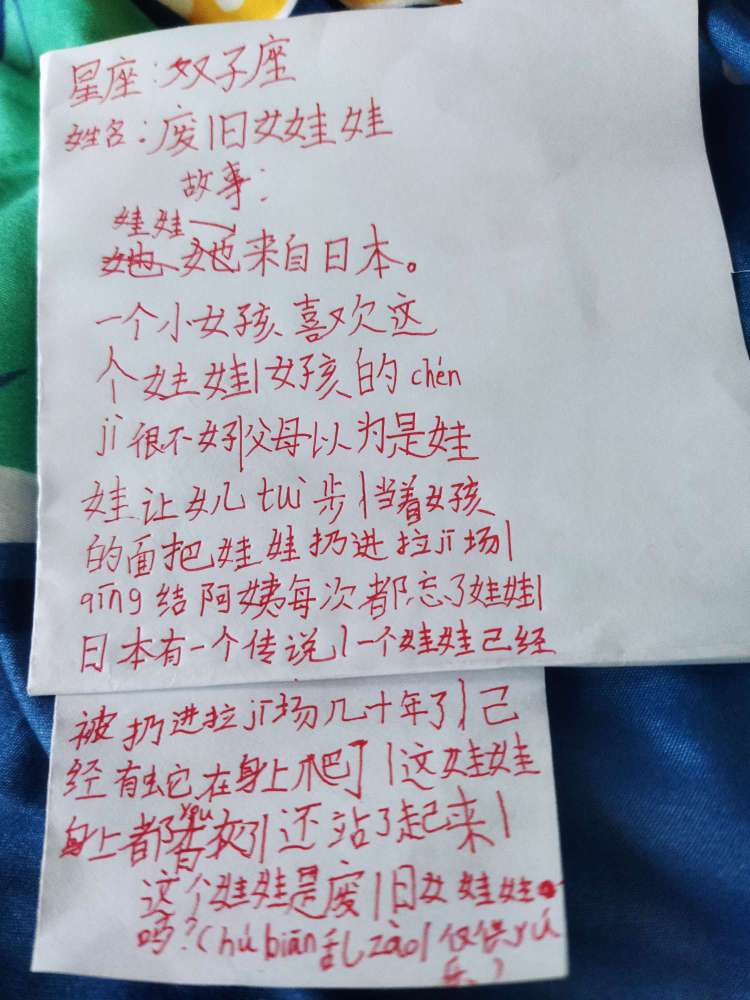 星座：双子座
姓名：废旧女娃娃
故事：
娃娃
她她来自日本。
一个小女孩、喜欢这
个娃娃|女孩的chén
jì很不好|父母以为是娃
娃让女儿tuì步|当着女孩
的面把娃娃扔进拉jī场|
qīng结阿姨每次都忘了娃娃|
日本有一个传说|一个娃娃己经
被扔进拉jī场几十年了|己
经有蛇在身上爬了|这娃娃
yǒu
身上都有灰了|还站了起来|
这个娃娃是废旧女娃娃
吗？(hú biān乱zào|仅供yú
乐)